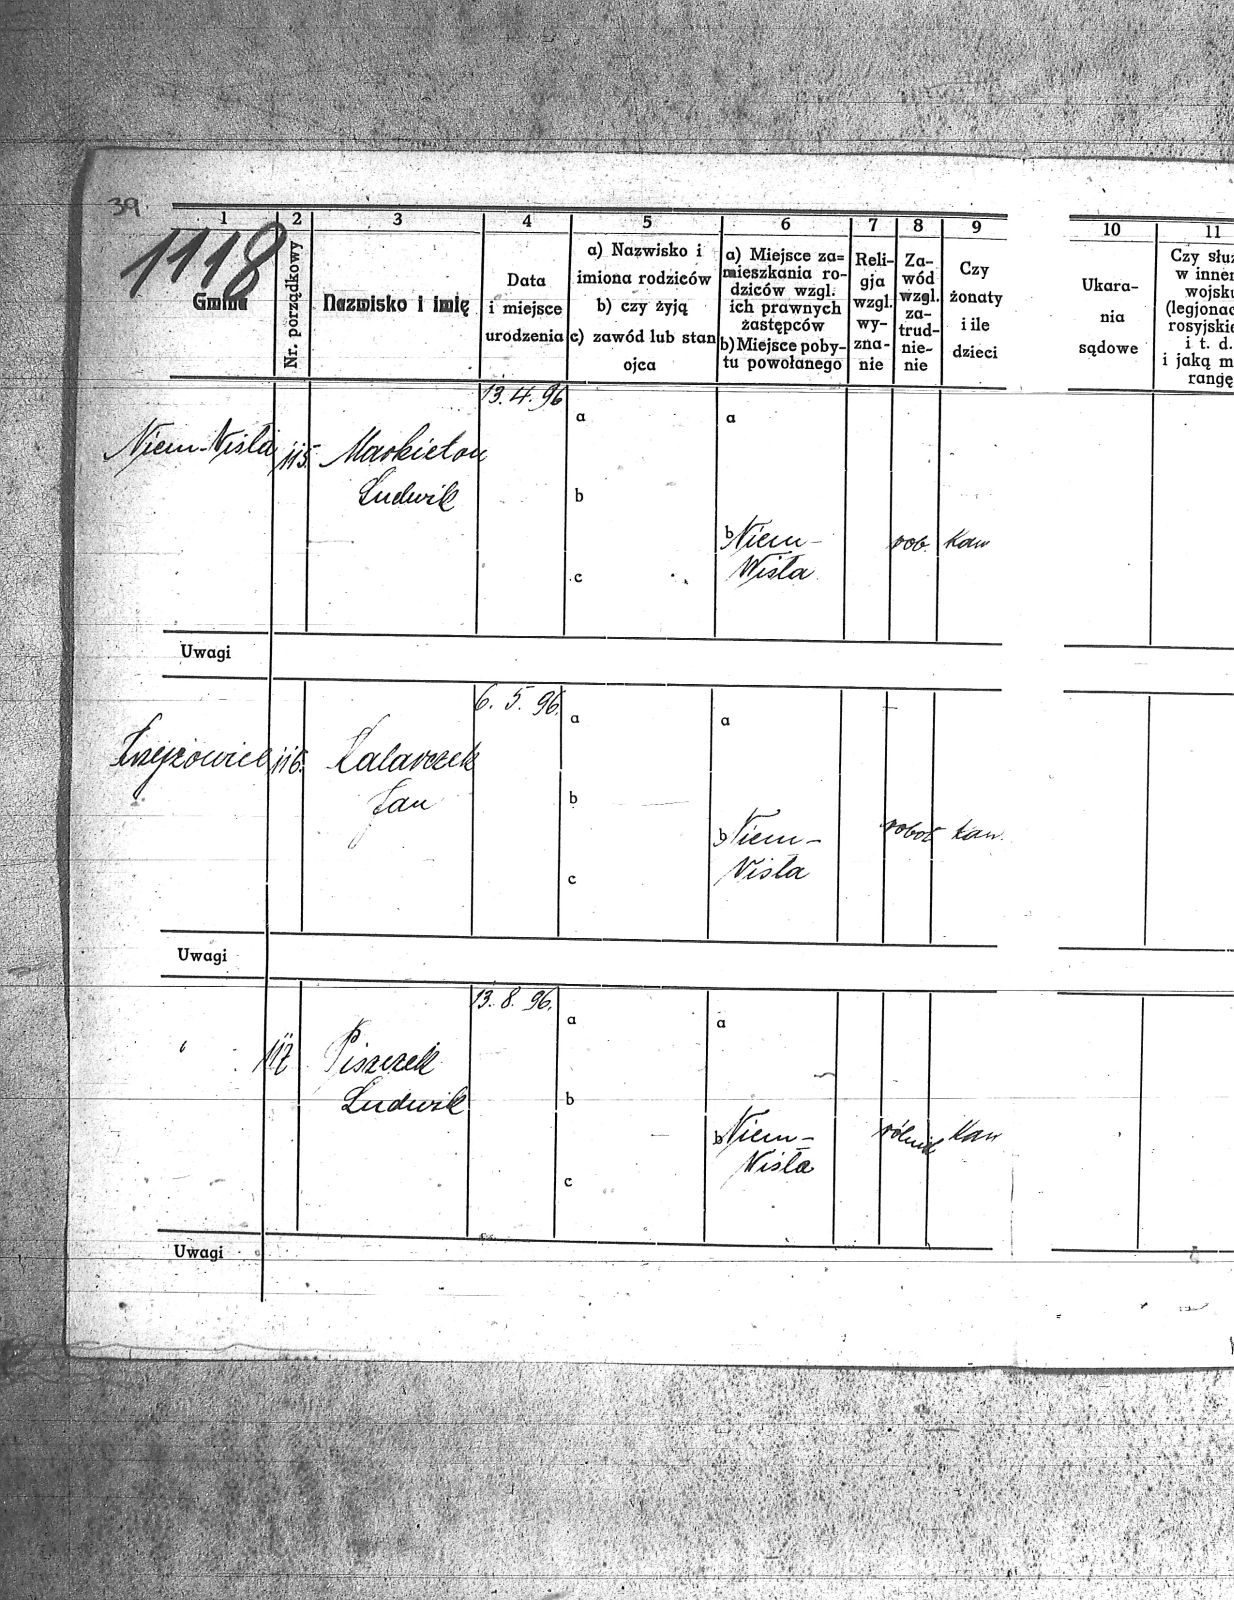 39.
1 2 3 4 5 6 7 8 9 10 11
1118
Gmina
Nr. porządkowy
Nazwisko i imię
Data
i miejsce
urodzenia
a) Nazwisko i
imiona rodziców
b) czy żyją
c) zawód lub stan
ojca
a) Miejsce za=
mieszkania ro-
dziców wzgl.
ich prawnych
zastępców
b) Miejsce poby-
tu powołanego
Reli-
gja
wzgl.
wy-
zna-
nie
Za-
wód
wzgl.
za-
trud-
nie-
nie
Czy
żonaty
i ile
dzieci
Ukara-
nia
sądowe
Czy służ
w innem
wojsku
(legjonac
rosyjskie
i t. d.
i jaką m
rangę
13. 4. 96
a a
Niem-Wisła 115. Markieton
Ludwik
b
b Niem-
Wisła
rob. kaw
c
Uwagi
6. 5. 96.
a a
116.
Jan
b
b Niem-
Wisła
robot kaw.
c
Uwagi
13. 8. 96.
a a
" 117 Piszczek
Ludwik
b
b Niem-
Wisła
rólnik kaw
c
Uwagi